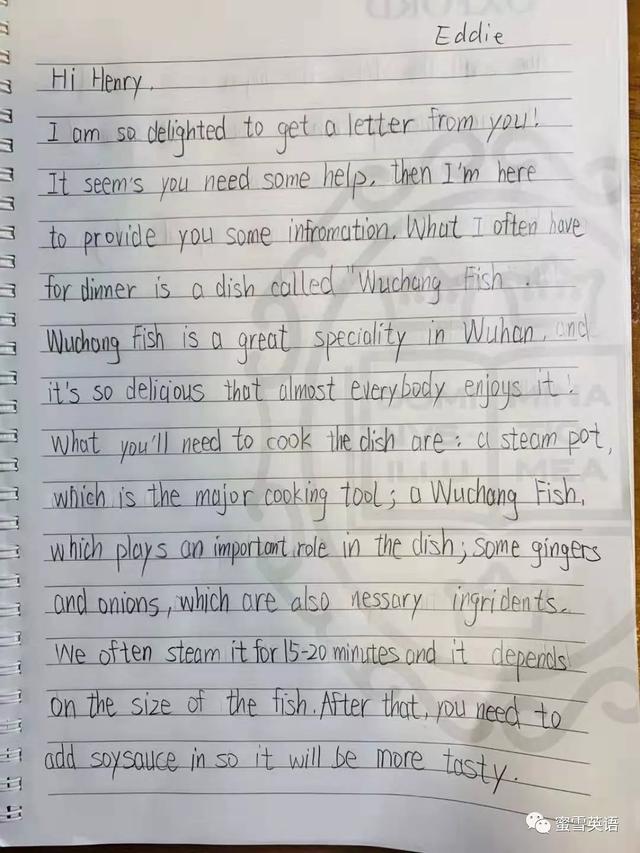 OXFORD
Eddie
Hi Henry,
I am so delighted to get a letter from you!
It seem's you need some help, then I'm here
to provide you some infromation. What I often have
for dinner is a dish called "Wuchang Fish".
Wuchang Fish is a great speciality in Wuhan, and
it's so delicious that almost everybody enjoys it!
What you'll need to cook the dish are: a steam pot,
which is the major cooking tool; a Wuchang Fish,
which plays an important role in the dish; some gingers
and onions, which are also nessary ingridents.
We often steam it for 15-20 minutes and it depends
on the size of the fish. After that, you need to
add soysauce in so it will be more tasty.
蜜雪英语